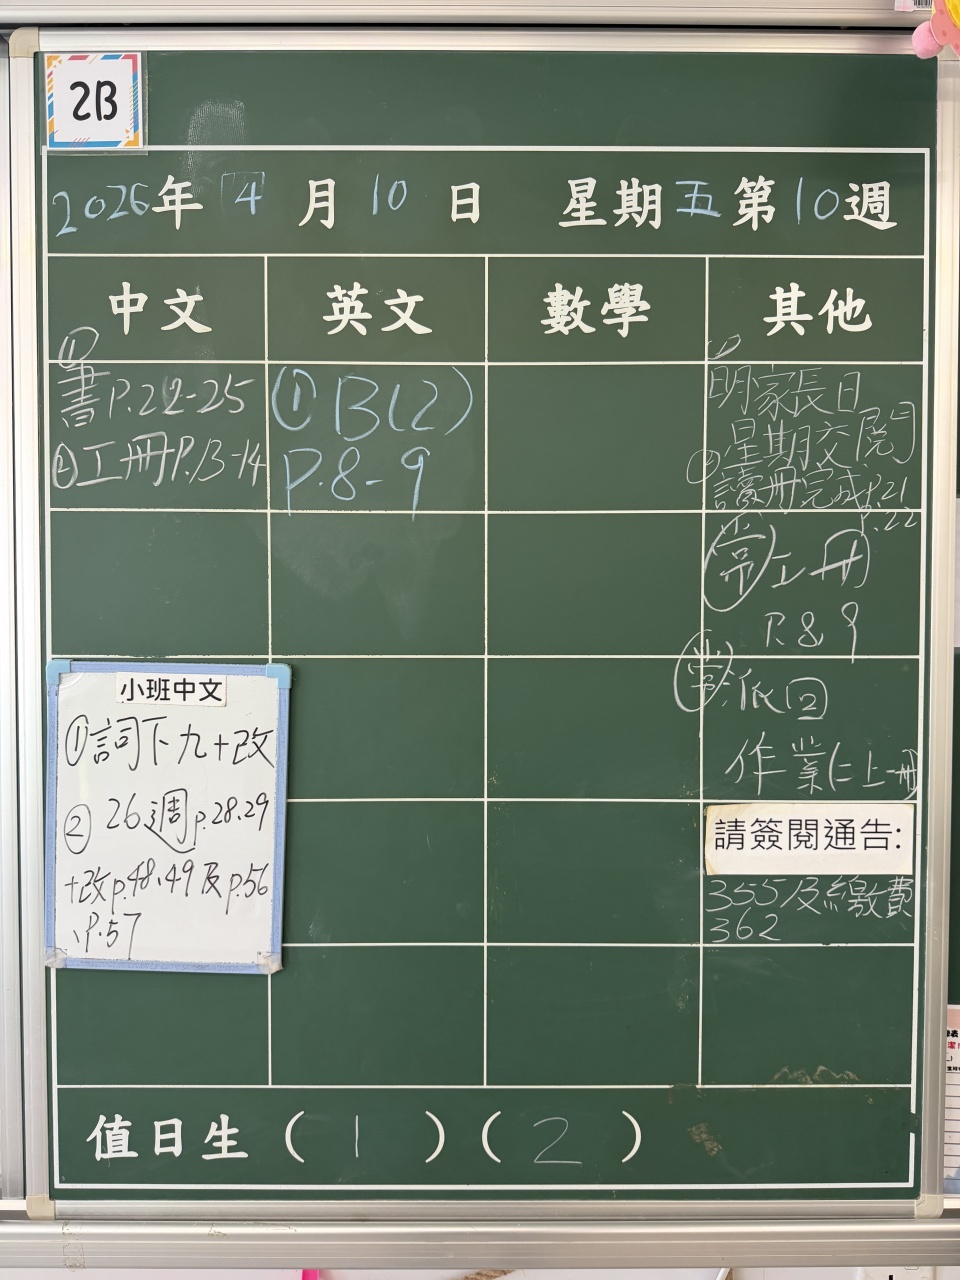 2B
2026年4月10日 星期五第10週
中文 英文 數學 其他
①
書P.22-25
②工冊P.13-14
①B(2)
P.8-9
①
明家長日
星期交閱
②讀冊完成P.21
P.22
常工冊
P.8 9
常:派回
作業(二上冊
小班中文
①詞下九+改
②26週p.28.29
+改p.48、49及p.56
、P.57
請簽閱通告:
355及繳費
362
值日生(1)(2)